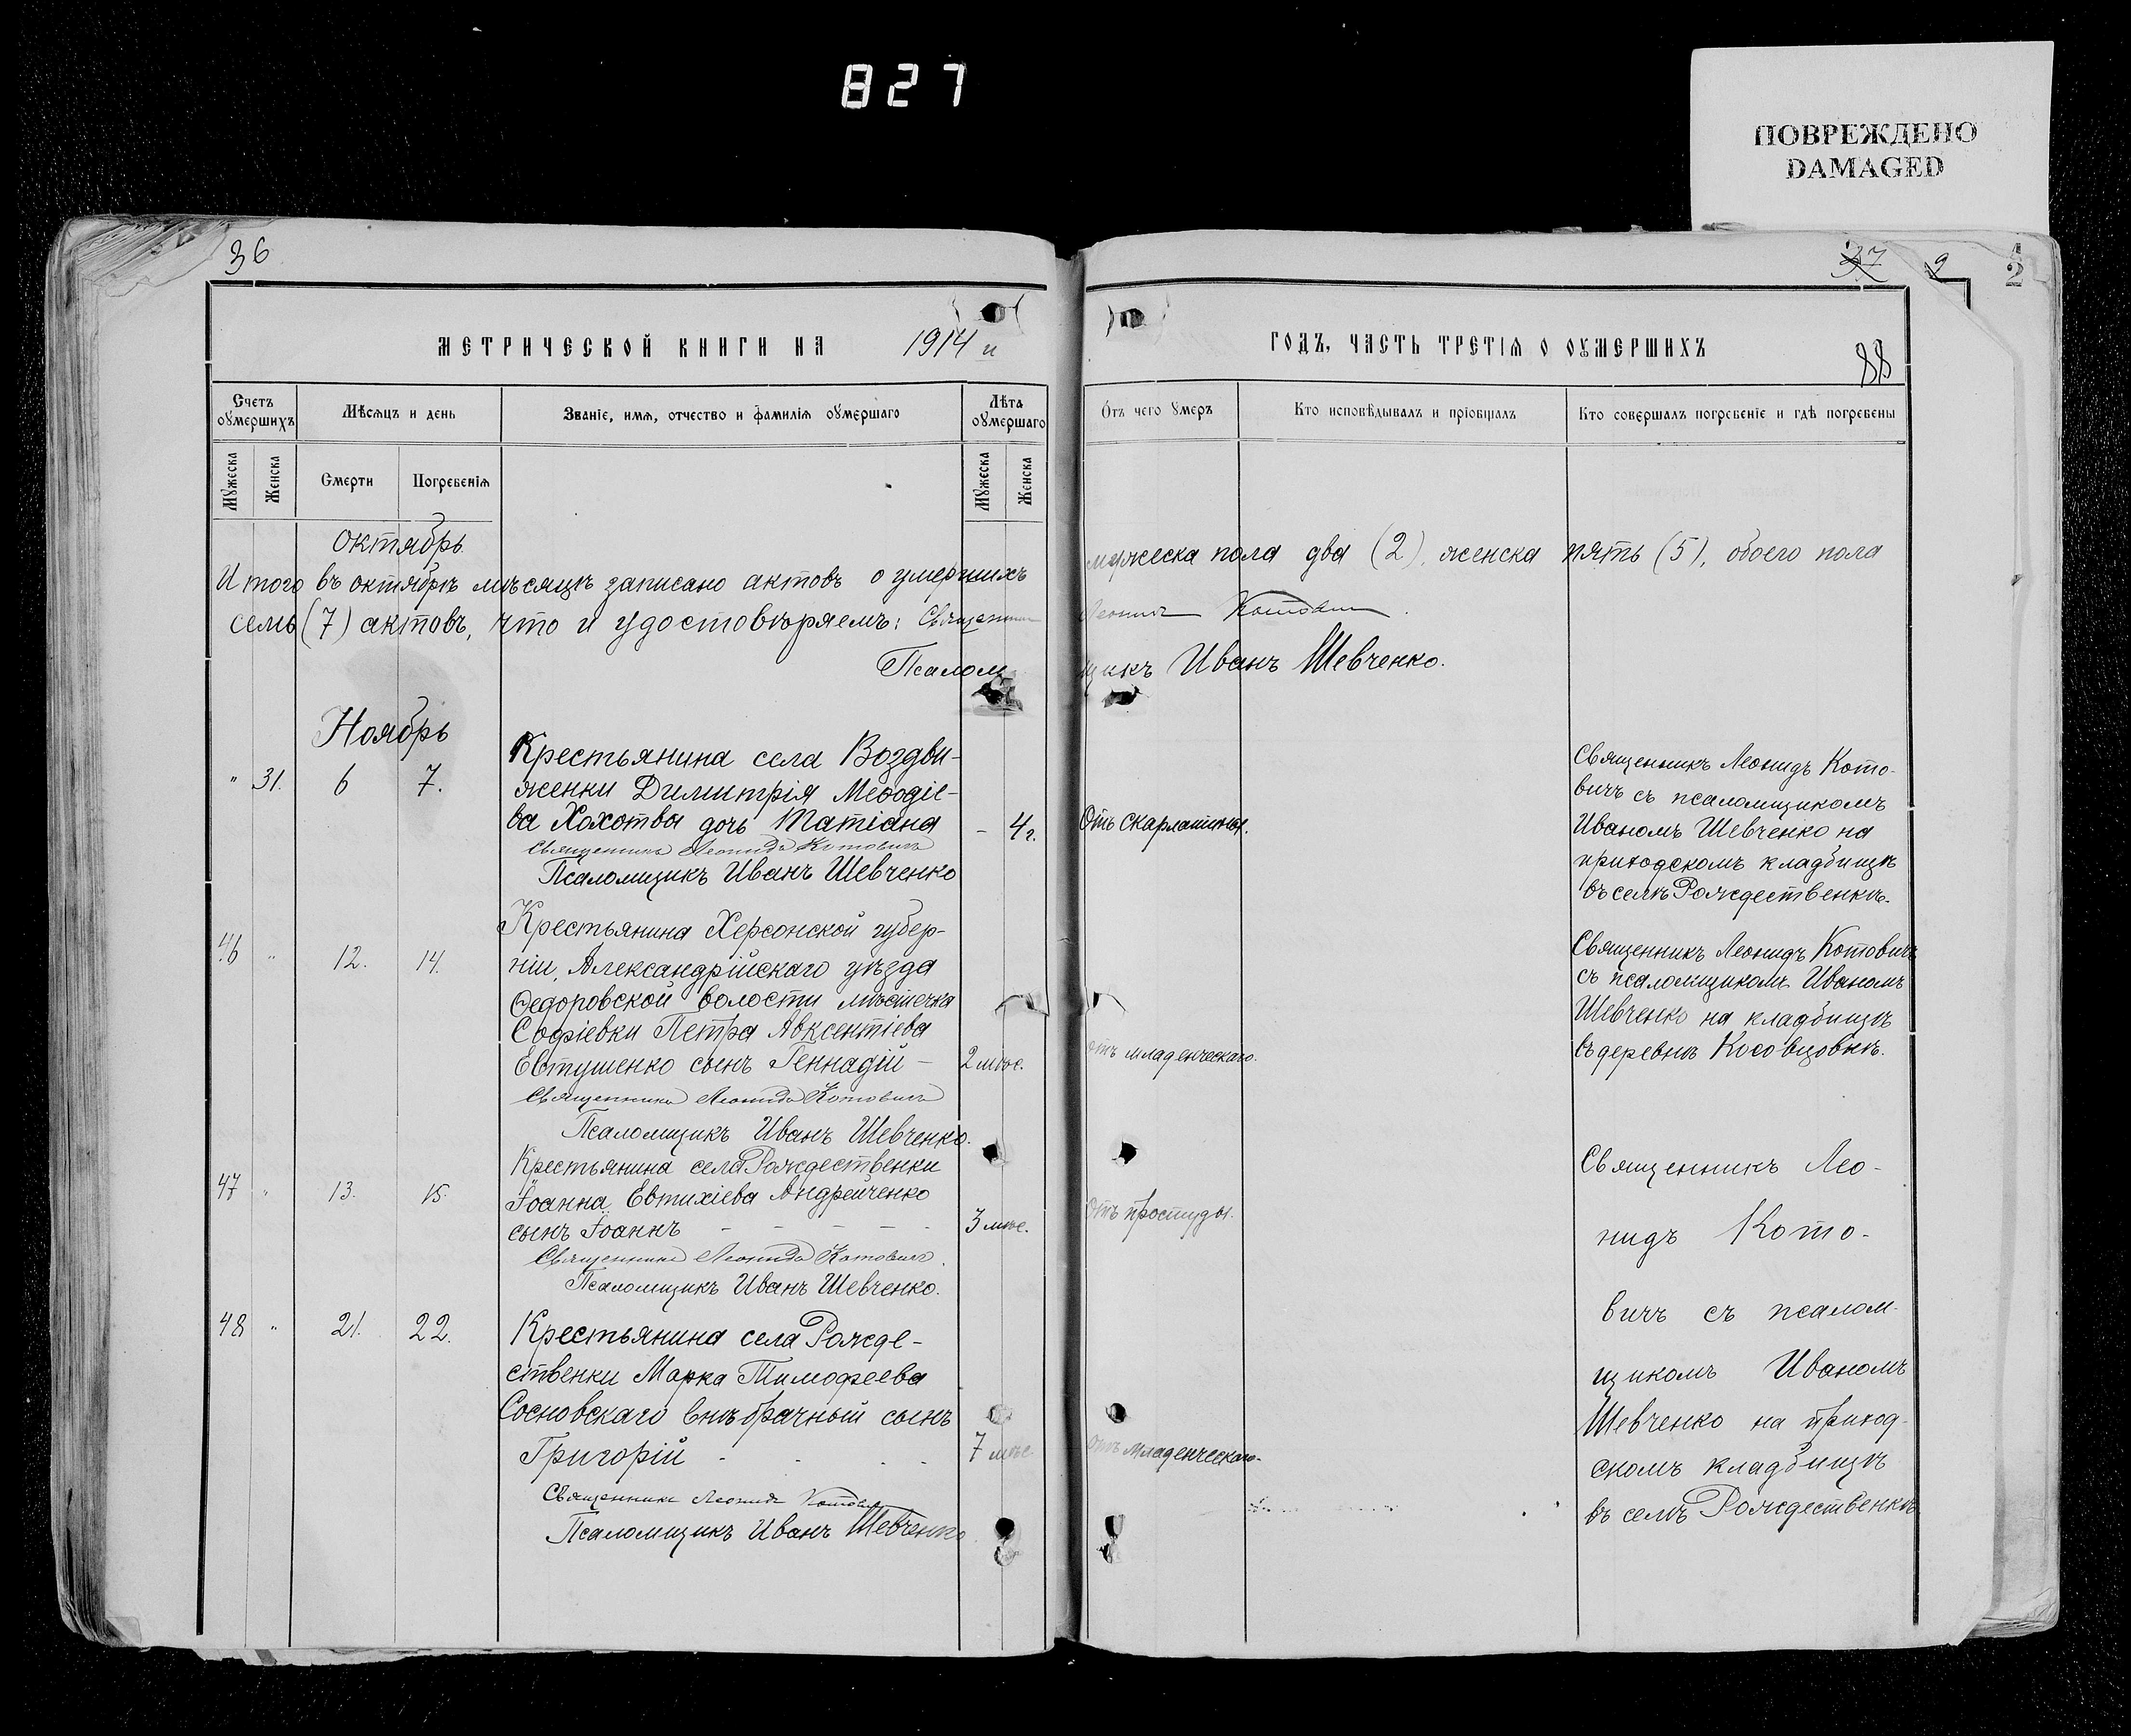 827
ПОВРЕЖДЕНО
DAMAGED
36
37
9
МЕТРИЧЕСКОЙ КНИГИ НА 1914 й
ГОДЪ, ЧАСТЬ ТРЕТІѦ О ОУМЕРШИХЪ
88
Счетъ оумершихъ
Мѣсѧцъ и день
Званіе, имѧ, отчество и фамилїѧ оумершаго
Лѣта оумершаго
Отъ чего умеръ
Кто исповѣдывалъ и прїобщалъ
Кто совершалъ погребеніе и гдѣ погребены
Мужеска
Женска
Смерти
Погребенїѧ
Мужеска
Женска
Октябрь.
Итого въ октябрѣ мѣсяцѣ записано актовъ о умершихъ мужеска пола два (2), женска пять (5), обоего пола
семь (7) актовъ, что и удостовѣряемъ: Священникъ Леонидъ Котовичъ.
Псаломщикъ Иванъ Шевченко.
Ноябрь
" 31. 6 7.
Крестьянина села Воздви-
женки Димитрія Меѳодіе-
ва Хохотвы дочь Татіана - 4 г.
Священникъ Леонидъ Котовичъ
Псаломщикъ Иванъ Шевченко
Отъ скарлатины.
Священникъ Леонидъ Кото-
вичъ съ псаломщикомъ
Иваномъ Шевченко на
приходскомъ кладбищѣ
въ селѣ Рождественкѣ.
46 " 12. 14.
Крестьянина Херсонской губер-
ніи, Александрійскаго уѣзда
Ѳедоровской волости мѣстечка
Софіевки Петра Авксентіева
Евтушенко сынъ Геннадій - 2 мѣс.
Священникъ Леонидъ Котовичъ
Псаломщикъ Иванъ Шевченко.
отъ младенческаго.
Священникъ Леонидъ Котовичъ
съ псаломщикомъ Иваномъ
Шевченко на кладбищѣ
въ деревнѣ Косовцовкѣ.
47 " 13. 15.
Крестьянина села Рождественки
Іоанна Евтихіева Андрейченко
сынъ Іоаннъ - - - - - 3 мѣс.
Священникъ Леонидъ Котовичъ.
Псаломщикъ Иванъ Шевченко.
Отъ простуды.
48 " 21. 22.
Крестьянина села Рожде-
ственки Марка Тимофеева
Сосновскаго внѣбрачный сынъ
Григорій - - - - 7 мѣс.
Священникъ Леонидъ Котовичъ
Псаломщикъ Иванъ Шевченко
отъ младенческаго.
Священникъ Лео-
нидъ Кото-
вичъ съ псалом-
щикомъ Иваномъ
Шевченко на приход-
скомъ кладбищѣ
въ селѣ Рождественкѣ